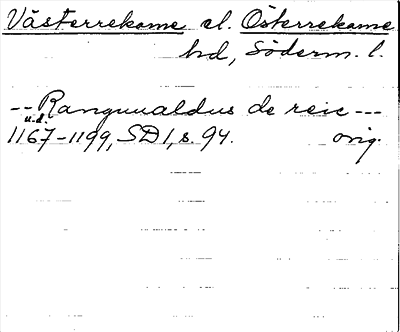 Västerrekarne el. Österrekarne
hd, Söderm. l.
-- Ranguualdus de reic ---
u.d.
1167-1199, SD 1, s. 94. orig.